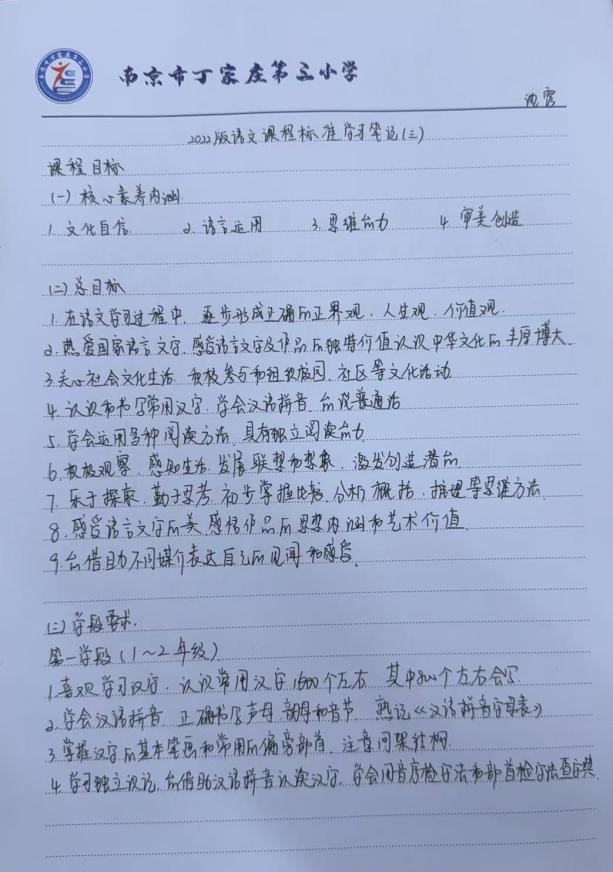 南京市丁家庄第三小学
沈雪
2022版语文课程标准学习笔记(三)
课程目标
(一)核心素养内涵
1.文化自信 2.语言运用 3.思维能力 4.审美创造
(二)总目标
1.在语文学习过程中,逐步形成正确的世界观,人生观,价值观.
2.热爱国家语言文字,感受语言文字及作品的独特价值认识中华文化的丰厚博大.
3.关心社会文化生活 积极参与和组织校园、社区等文化活动
4.认识和书写常用汉字,学会汉语拼音,能说普通话
5.学会运用多种阅读方法,具有独立阅读能力.
6.积极观察,感知生活,发展联想和想象,激发创造潜能.
7.乐于探索,勤于思考,初步掌握比较,分析,概括,推理等思维方法.
8.感受语言文字的美,感悟作品的思想内涵和艺术价值.
9.能借助不同媒介表达自己的见闻和感受.
(三)学段要求.
第一学段(1~2年级)
1.喜欢学习汉字,认识常用汉字1600个左右 其中800个左右会写.
2.学会汉语拼音 正确书写声母 韵母和音节 熟记《汉语拼音字母表》
3.掌握汉字的基本笔画和常用的偏旁部首,注意间架结构.
4.学习独立识记,能借助汉语拼音认读汉字,学会用音序检字法和部首检字法查字典.